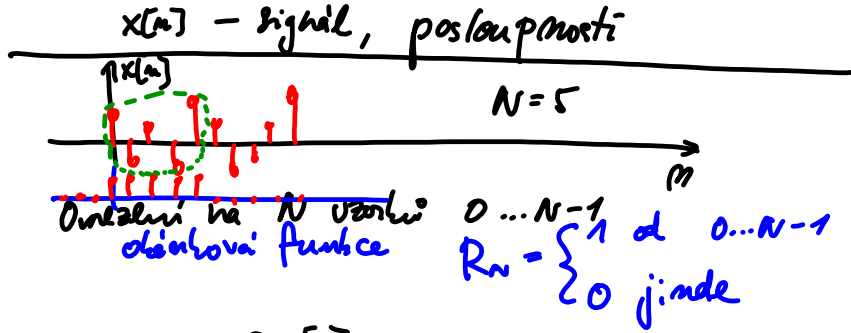 x[n] – signál, posloupnosti
x[n]
N = 5
n
Omezení na N vzorků 0...N-1
okénková funkce
R_N = { 1 od 0...N-1
0 jinde